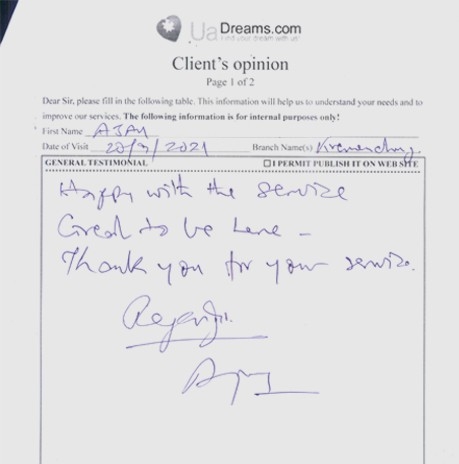 UaDreams.com
Find your dream with us!
Client's opinion
Page 1 of 2
Dear Sir, please fill in the following table. This information will help us to understand your needs and to
improve our services. The following information is for internal purposes only!
First Name AJAY
Date of Visit 20/9/2021 Branch Name(s) Kremenchug
GENERAL TESTIMONIAL ☐ I PERMIT PUBLISH IT ON WEB SITE
Happy with the service
Great to be here -
Thank you for your service.
Ajay